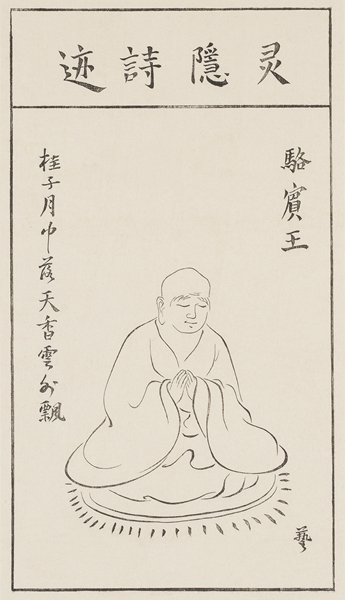 灵隱詩迹
駱賓王
桂子月中落天香雲外飄
藝